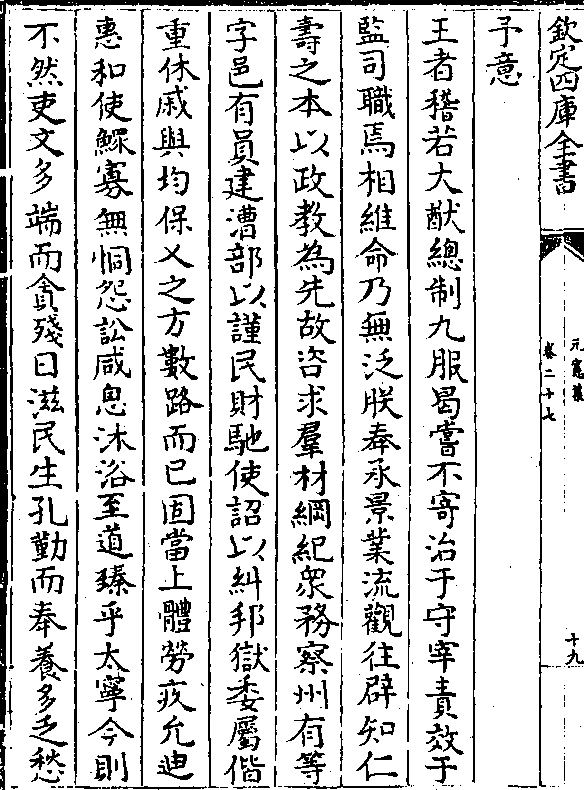 欽定四庫全書
元憲集
卷二十七
十九
予意
王者稽若大猷總制九服曷嘗不寄治于守宰責效于
監司職焉相維命乃無泛朕奉承景業流觀往辟知仁
壽之本以政教為先故咨求羣材綱紀衆務察州有等
字邑有員建漕部以謹民財馳使詔以糾邦獄委屬偕
重休戚與均保乂之方數路而已固當上體勞疚允迪
惠和使鰥寡無恫怨訟咸息沐浴至道臻乎太寧今則
不然吏文多端而貪殘日滋民生孔勤而奉養多乏愁